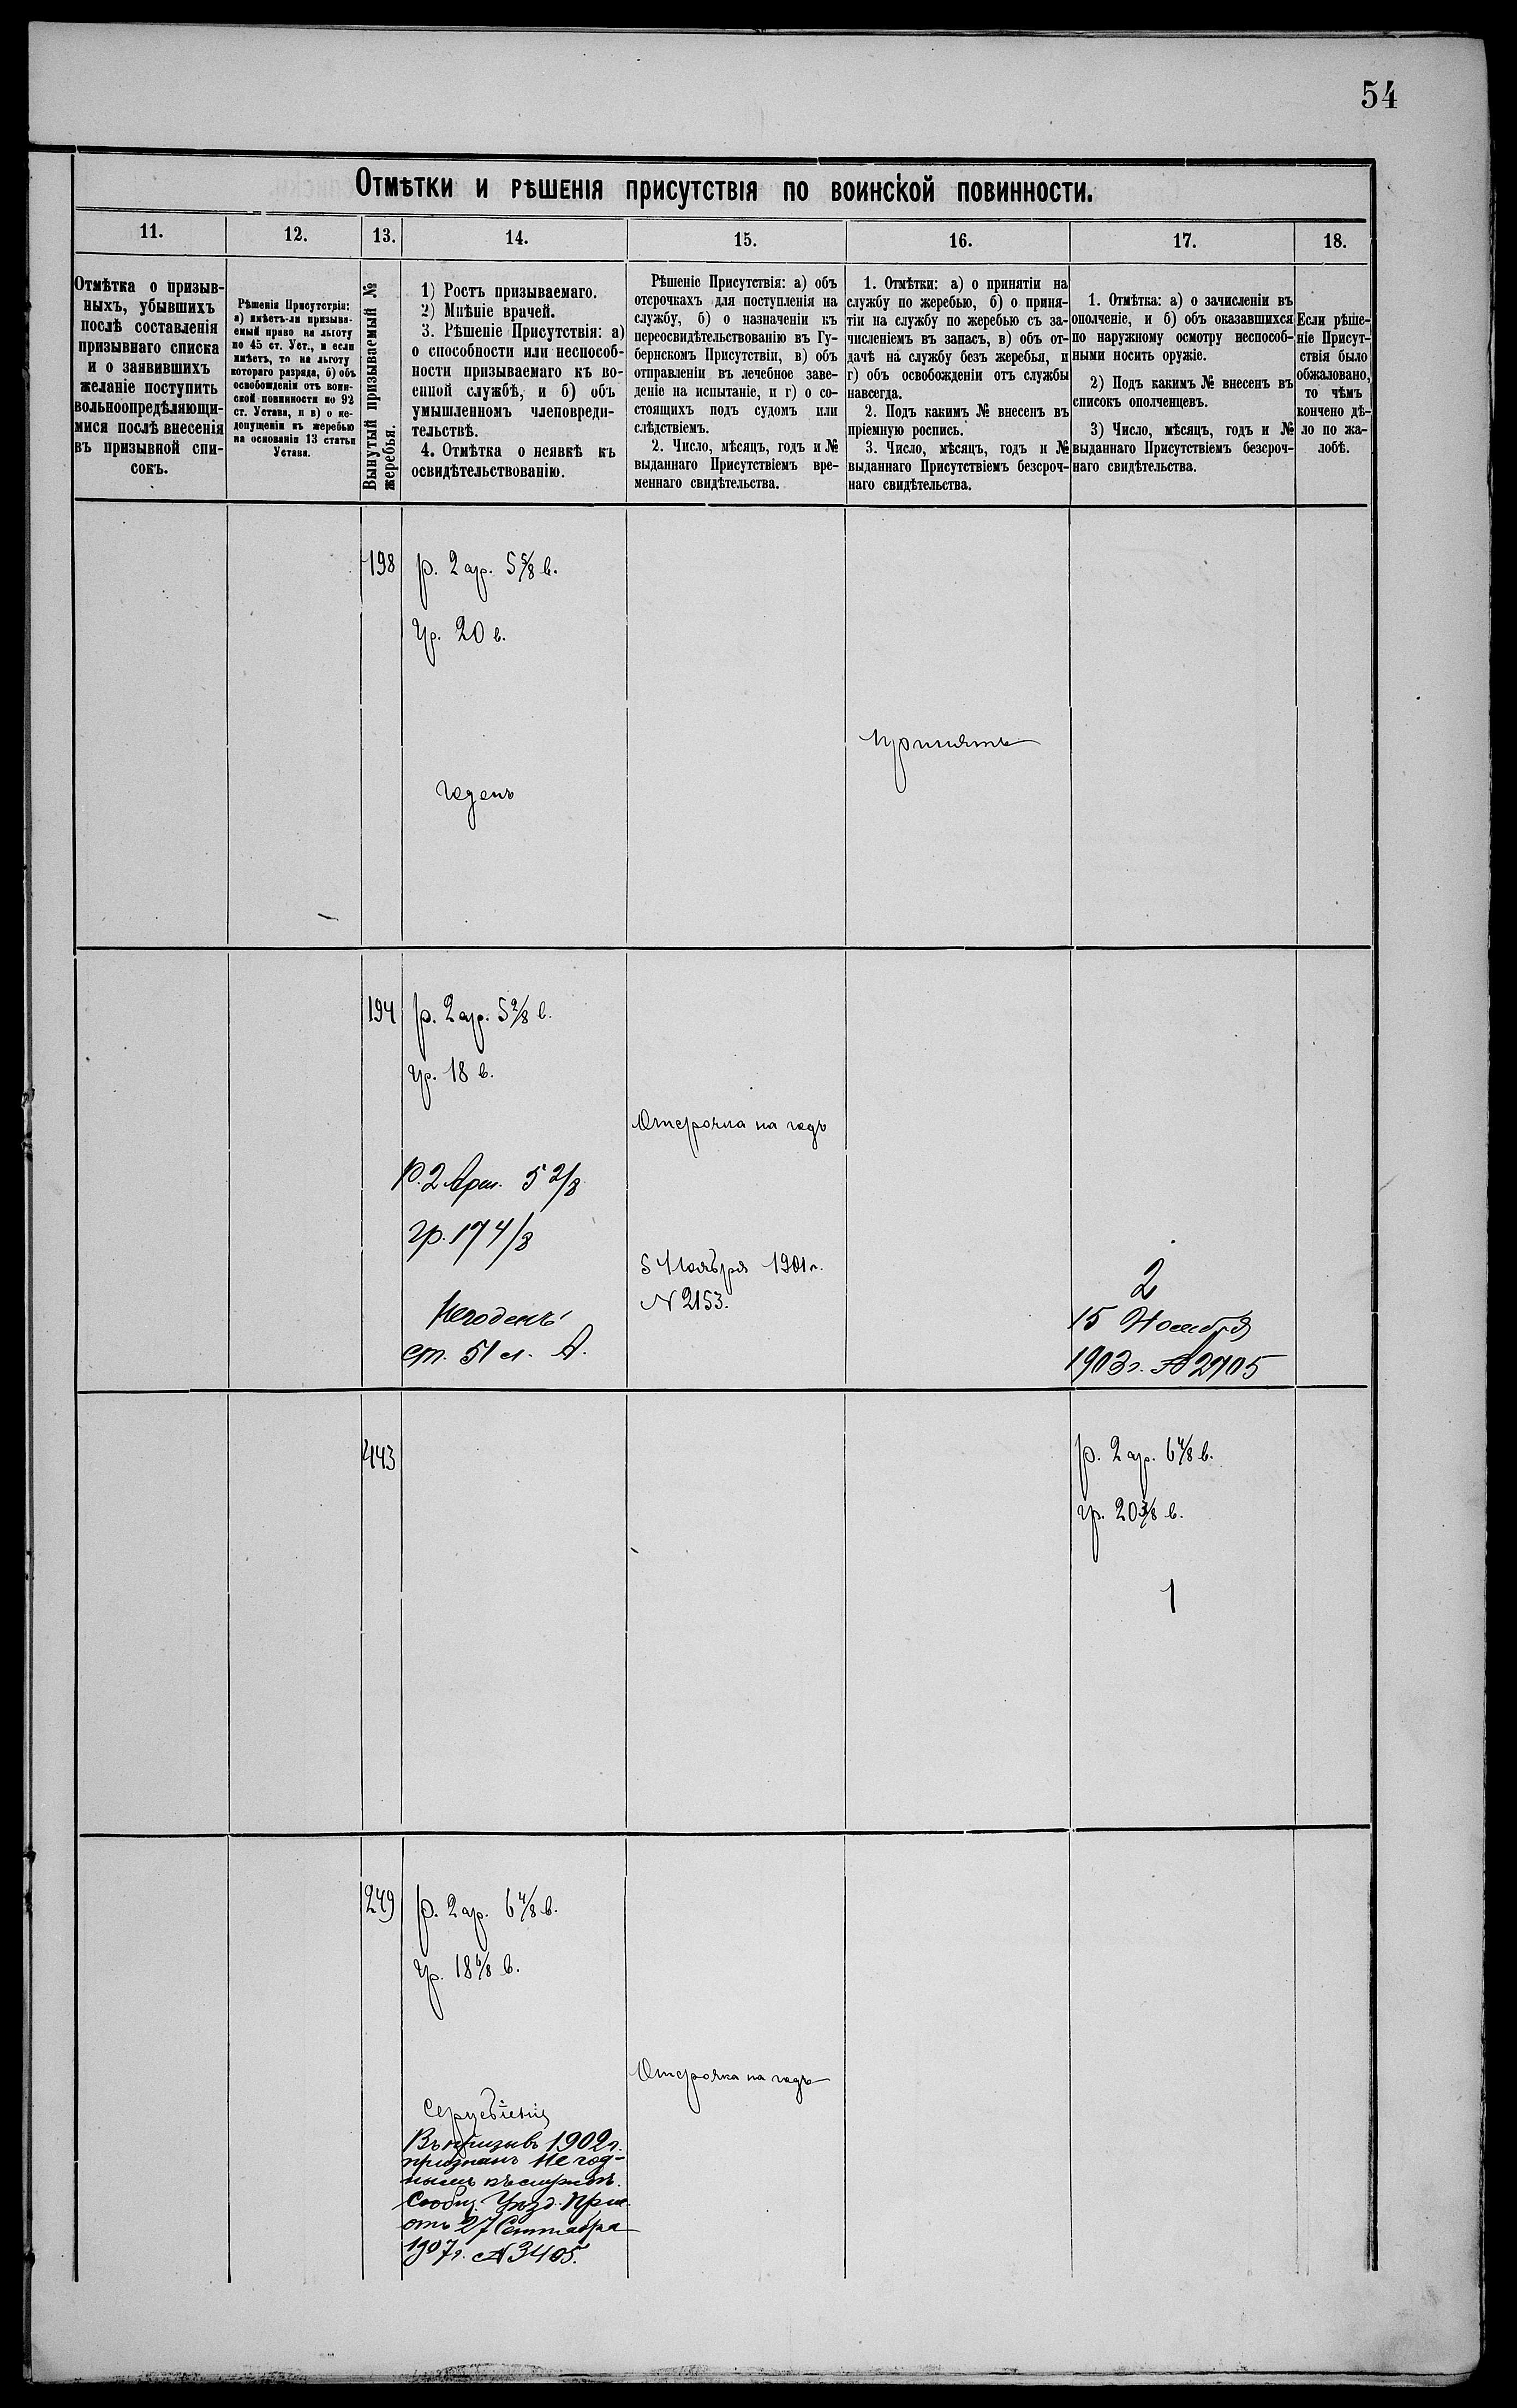 54
Отмѣтки и рѣшенія присутствія по воинской повинности.
11.
12.
13.
14.
15.
16.
17.
18.
Отмѣтка о призыв-
ныхъ, убывшихъ
послѣ составленія
призывнаго списка
и о заявившихъ
желаніе поступить
вольноопредѣляющи-
мися послѣ внесенія
въ призывной спи-
сокъ.
Рѣшенія Присутствія:
а) имѣетъ-ли призыва-
емый право на льготу
по 45 ст. Уст., и если
имѣетъ, то на льготу
котораго разряда, б) объ
освобожденіи отъ воин-
ской повинности по 92
ст. Устава, и в) о не-
допущеніи къ жеребью
на основаніи 13 статьи
Устава.
Вынутый призываемый №
жеребья.
1) Ростъ призываемаго.
2) Мнѣніе врачей.
3. Рѣшеніе Присутствія: а)
о способности или неспособ-
ности призываемаго къ во-
енной службѣ, и б) объ
умышленномъ членовреди-
тельствѣ.
4. Отмѣтка о неявкѣ къ
освидѣтельствованію.
Рѣшеніе Присутствія: а) объ
отсрочкахъ для поступленія на
службу, б) о назначеніи къ
переосвидѣтельствованію въ Гу-
бернскомъ Присутствіи, в) объ
отправленіи въ лечебное заве-
деніе на испытаніе, и г) о со-
стоящихъ подъ судомъ или
слѣдствіемъ.
2. Число, мѣсяцъ, годъ и №
выданнаго Присутствіемъ вре-
меннаго свидѣтельства.
1. Отмѣтки: а) о принятіи на
службу по жеребью, б) о приня-
тіи на службу по жеребью съ за-
численіемъ въ запасъ, в) объ от-
дачѣ на службу безъ жеребья, и
г) объ освобожденіи отъ службы
навсегда.
2. Подъ какимъ № внесенъ въ
пріемную роспись.
3. Число, мѣсяцъ, годъ и №
выданнаго Присутствіемъ безсроч-
наго свидѣтельства.
1. Отмѣтка: а) о зачисленіи въ
ополченіе, и б) объ оказавшихся
по наружному осмотру неспособ-
ными носить оружіе.
2) Подъ какимъ № внесенъ въ
списокъ ополченцевъ.
3) Число, мѣсяцъ, годъ и №
выданнаго Присутствіемъ безсроч-
наго свидѣтельства.
Если рѣше-
ніе Присут-
ствія было
обжаловано,
то чѣмъ
кончено дѣ-
ло по жа-
лобѣ.
198
р. 2 ар. 5 5/8 в.
гр. 20 в.
принятъ
годенъ
194
р. 2 ар. 5 2/8 в.
гр. 18 в.
Отсрочка на годъ
Р. 2 Арш. 5 2/8
гр. 17 4/8
5 Ноября 1901 г.
№ 2153.
Негоденъ
ст. 51 л. А.
2
15 Ноября
1903 г. № 2705
443
р. 2 ар. 6 4/8 в.
гр. 20 3/8 в.
1
249
р. 2 ар. 6 4/8 в.
гр. 18 6/8 в.
Отсрочка на годъ
Въ призывъ 1902 г.
признанъ не год-
нымъ къ службѣ.
Сообщ. Уѣзд. Прис.
отъ 27 Сентября
1907 г. № 3405.